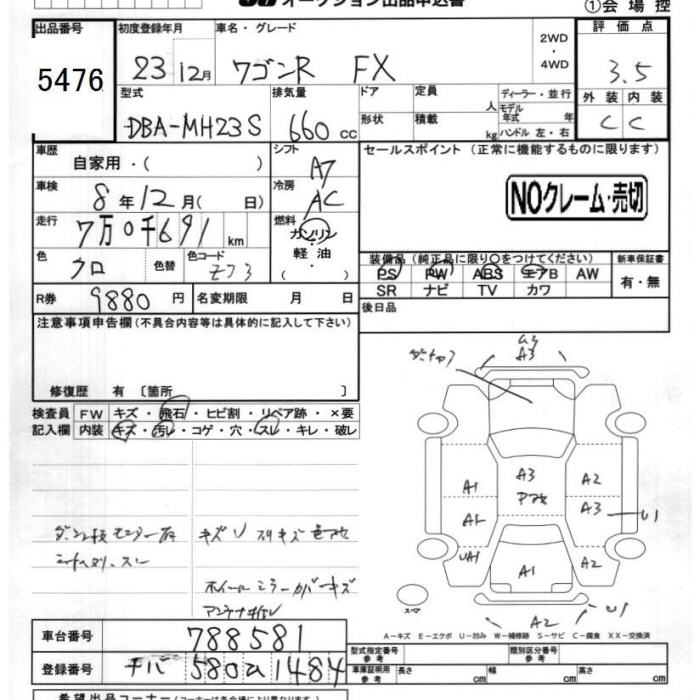 オークション出品申込書
①会場控
出品番号 初度登録年月 車名・グレード 2WD・4WD 評価点
5476 23 12月 ワゴンR FX 3.5
型式 排気量 ドア 定員 人 ディーラー・並行 外装 内装
DBA-MH23S 660cc 形状 積載 kg モデル年式 年 ハンドル 左・右 C C
車歴 自家用・( ) シフト A7 セールスポイント (正常に機能するものに限ります)
車検 8年12月( 日) 冷房 AC NOクレーム・売切
走行 7万0千691km 燃料 ガソリン・軽油・( )
色 クロ 色替 色コード Z73
装備品 (純正品に限り○をつけてください) 新車保証書
PS PW ABS エアB AW 有・無
SR ナビ TV カワ
R券 9880円 名変期限 月 日 後日品
注意事項申告欄 (不具合内容等は具体的に記入して下さい)
修復歴 有 〔箇所 〕
検査員 FW キズ・飛石・ヒビ割・リペア跡・×要
記入欄 内装 キズ・汚レ・コゲ・穴・スレ・キレ・破レ
キズU スリキズ 色アセ
ホイール ミラーカバーキズ
A3
A3
A3
A1 A2
A1 A3 U1
UA1 A2
A1
U1
A2
スペア
A-キズ E-エクボ U-凹み W-補修跡 S-サビ C-腐食 XX-交換済
車台番号 788581
登録番号 チバ 580 1484
型式指定番号 参考 類別区分番号 参考
車庫証明用 参考 長さ cm 幅 cm 高さ cm
希望出品コーナー